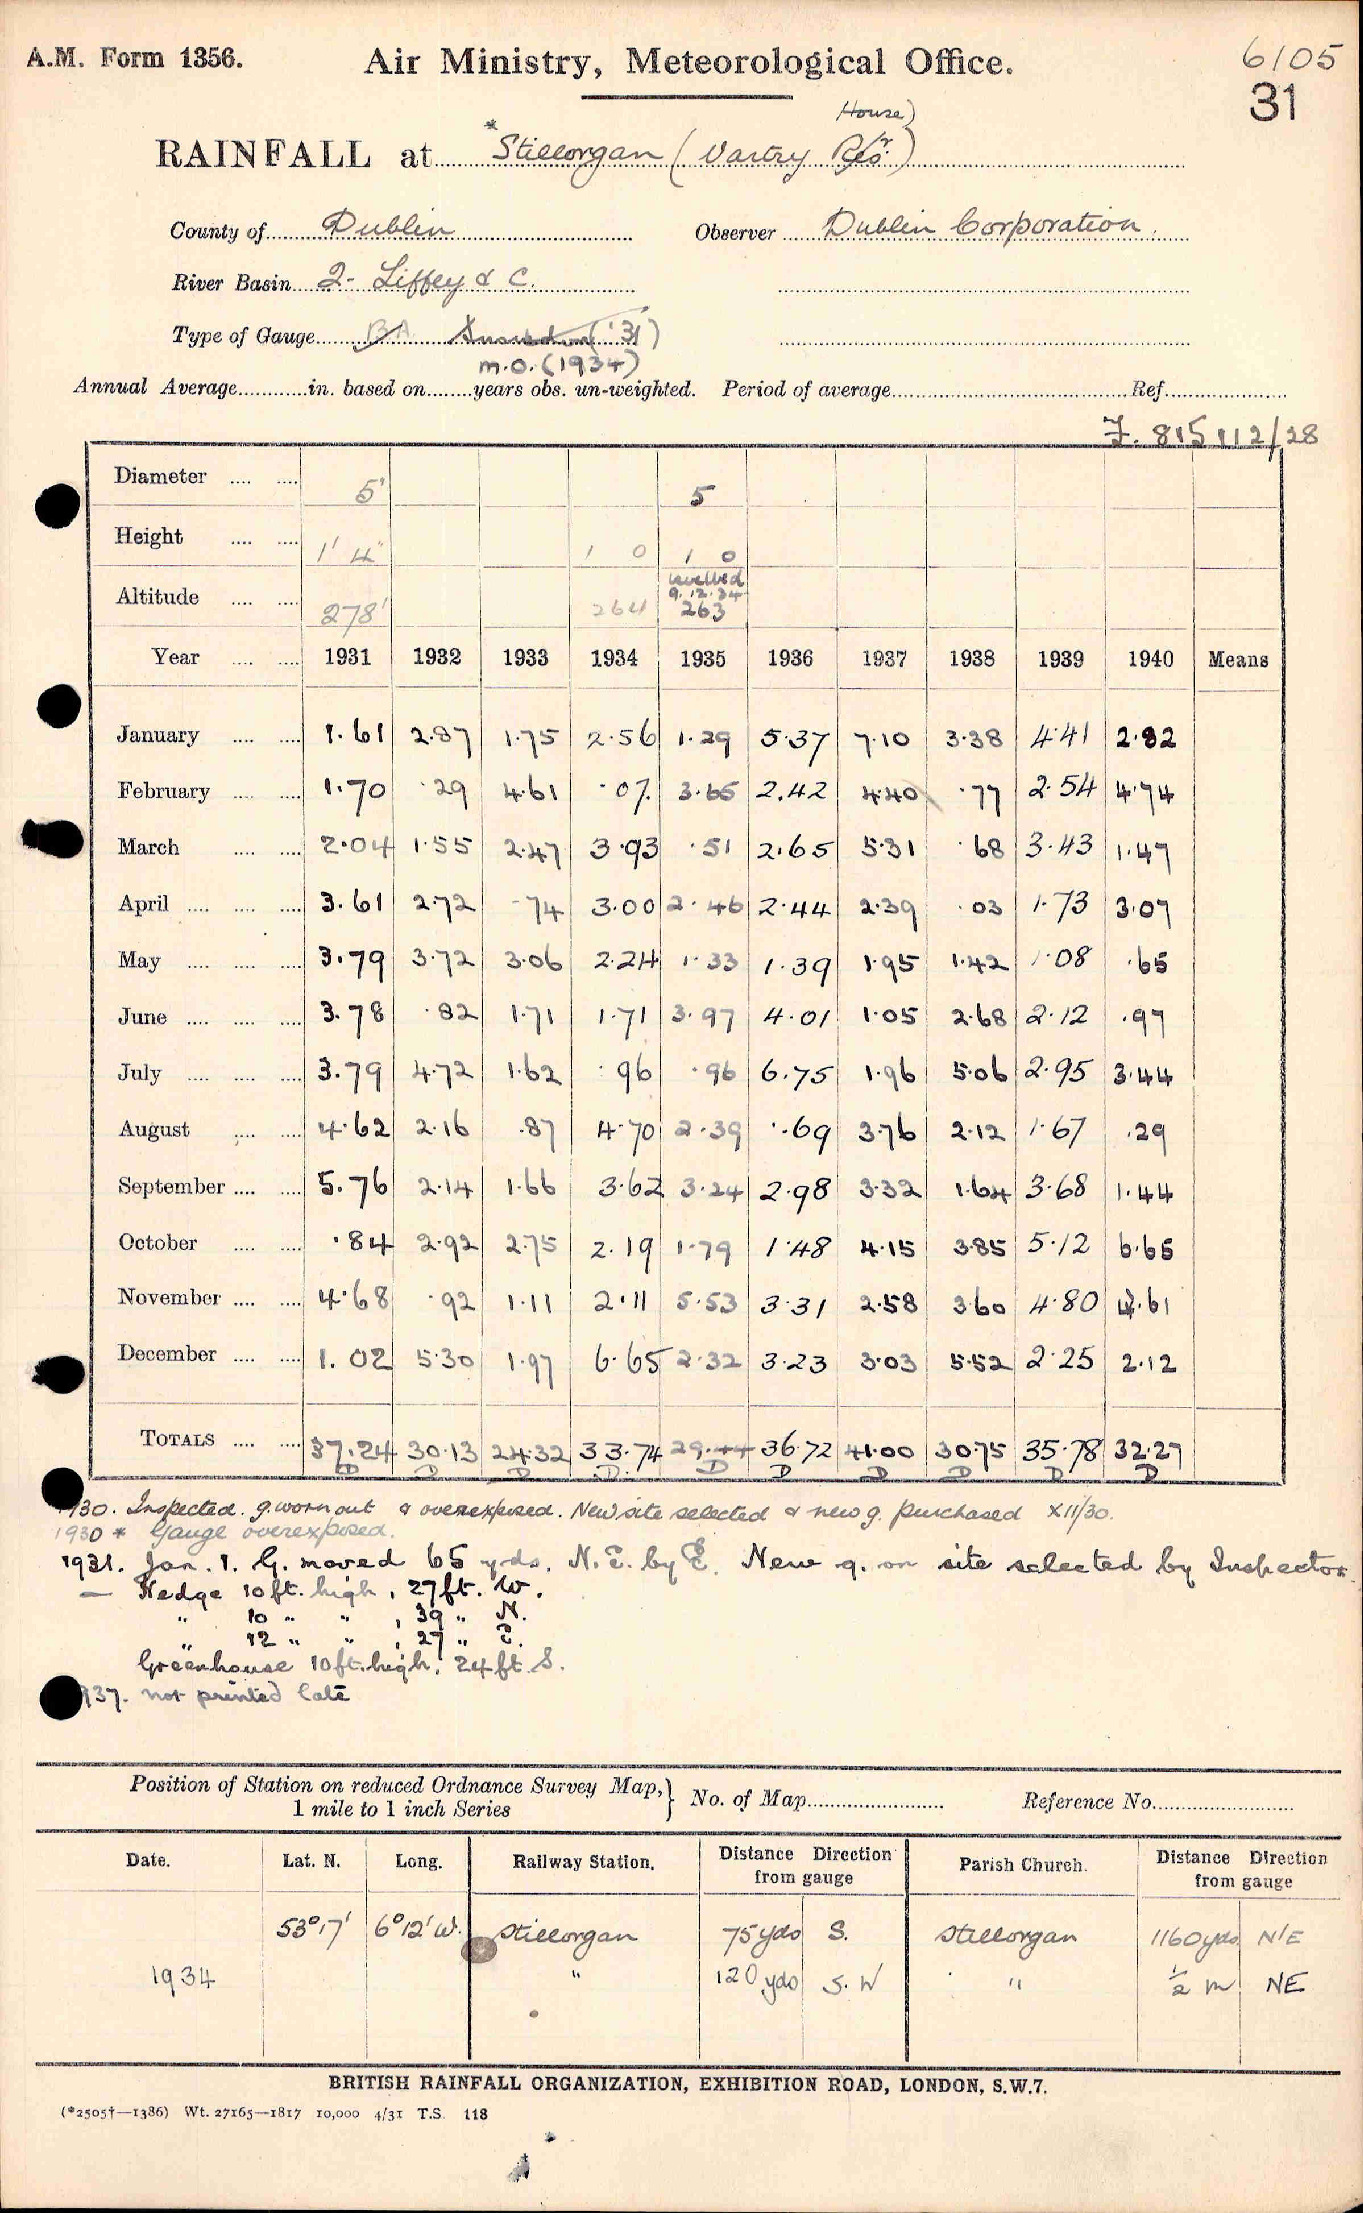 A.M. Form 1356. Air Ministry, Meteorological Office. 6105
31
House)
RAINFALL at *Stillorgan (Vartry Resr.)
County of Dublin Observer Dublin Corporation.
River Basin 2- Liffey & C.
Type of Gauge BA Snowdon ('31)
M.O. (1934)
Annual Average in. based on years obs. un-weighted. Period of average Ref.
815112/28
Diameter 5" 5
Height 1' 4" 1 0 1 0
levelled
9.12.34
Altitude 278' 264 263
Year 1931 1932 1933 1934 1935 1936 1937 1938 1939 1940 Means
January 1.61 2.87 1.75 2.56 1.29 5.37 7.10 3.38 4.41 2.82
February 1.70 .29 4.61 .07 3.65 2.42 4.40 .77 2.54 4.74
March 2.04 1.55 2.47 3.93 .51 2.65 5.31 .68 3.43 1.47
April 3.61 2.72 .74 3.00 2.46 2.44 2.39 .03 1.73 3.07
May 3.79 3.72 3.06 2.24 1.33 1.39 1.95 1.42 1.08 .65
June 3.78 .82 1.71 1.71 3.97 4.01 1.05 2.68 2.12 .97
July 3.79 4.72 1.62 .96 .96 6.75 1.96 5.06 2.95 3.44
August 4.62 2.16 .87 4.70 2.39 .69 3.76 2.12 1.67 .29
September 5.76 2.14 1.66 3.62 3.24 2.98 3.32 1.64 3.68 1.44
October .84 2.92 2.75 2.19 1.79 1.48 4.15 3.85 5.12 6.65
November 4.68 .92 1.11 2.11 5.53 3.31 2.58 3.60 4.80 4.61
December 1.02 5.30 1.97 6.65 2.32 3.23 3.03 5.52 2.25 2.12
TOTALS 37.24 30.13 24.32 33.74 29.44 36.72 41.00 30.75 35.78 32.27
D D D D D D D D D D
1930. Inspected. g. worn out & overexposed. New site selected & new g. purchased XII/30.
1930 * Gauge overexposed.
1931. Jan. 1. G. moved 65 yds. N.E. by E. New g. on site selected by Inspector.
— Hedge 10 ft. high, 27 ft. W.
" 10 " " , 39 " N.
" 12 " " , 27 " E.
Greenhouse 10 ft. high, 24 ft S.
937. not printed late
Position of Station on reduced Ordnance Survey Map,} No. of Map Reference No.
1 mile to 1 inch Series
Date. Lat. N. Long. Railway Station. Distance Direction from gauge Parish Church. Distance Direction from gauge
53°17' 6°12'W. Stillorgan 75 yds S. Stillorgan 1160 yds N'E
1934 " 120 yds S.W " ½ m NE
BRITISH RAINFALL ORGANIZATION, EXHIBITION ROAD, LONDON, S.W.7.
(*2505†—1386) Wt. 27165—1817 10,000 4/31 T.S. 118